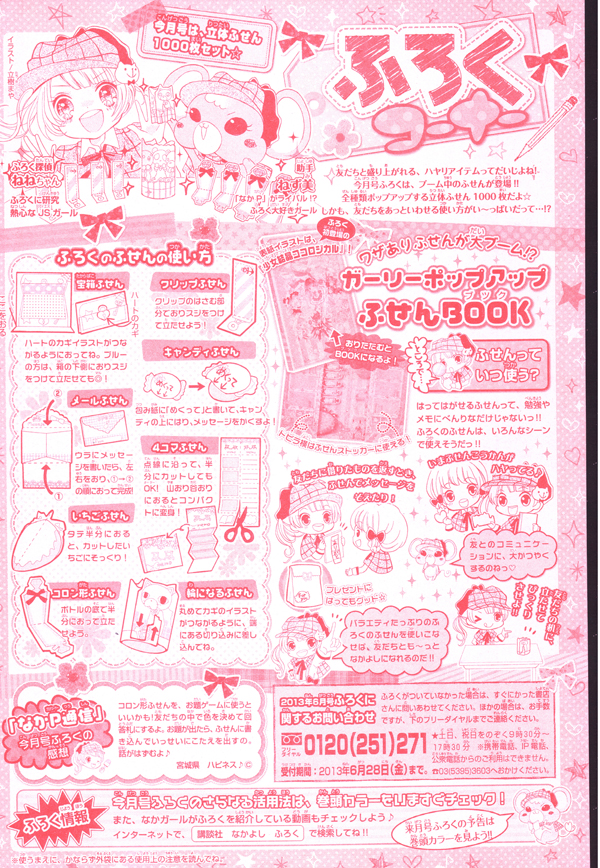 今月号は、立体ふせん
1000枚セット☆
ふろく
コーナー
イラスト/立樹まや
ふろく探偵
ねねちゃん
ふろくに研究
熱心なJSガール
助手
ねず美
「なかP」がライバル!?
ふろく大好きガール
友だちと盛り上がれる、ハヤリアイテムってだいじよね!
今月号ふろくは、ブーム中のふせんが登場!!
全種類ポップアップする立体ふせん 1000枚だよ☆
しかも、友だちをあっといわせる使い方がい〜っぱいだって…!?
ふろくのふせんの使い方
宝箱ふせん
ハートのカギ
ハートのカギイラストがつな
がるようにおってね。ブルー
の方は、箱の下側におりスジ
をつけて立たせても◎!
クリップふせん
クリップのはさむ部
分でおりスジをつけ
て立たせよう!
キャンディふせん
めくって
包み紙に「めくって」と書いて、キャン
ディの上にはり、メッセージをかくせるよ!
メールふせん
②
①
ウラにメッセー
ジを書いたら、左
右をおり、①→②
の順におって完成!
4コマふせん
点線に沿って、半
分にカットしても
OK! 山おり谷おり
におるとコンパク
トに変身!
いちごふせん
タテ半分におる
と、カットしたいち
ごにそっくり!
コロン形ふせん
ボトルの底で半
分におって立た
せよう。
輪になるふせん
丸めてカギのイラスト
がつながるように、端
にある切り込みに差し
込んでね。
表紙イラストは、
ふろく初登場の
「少女結晶ココロジカル」!
ワザありふせんが大ブーム!?
ガーリーポップアップ
ふせんBOOK
おりたたむと
BOOKになるよ!
トビラ横はふせんストッカーに使える!
ふせんって
いつ使う?
はってはがせるふせんって、勉強や
メモにべんりなだけじゃないっ!!
ふろくのふせんは、いろんなシーン
で使えそうだっ!!
友だちに借りたものを返すとき、
ふせんでメッセージを
そえたり!
いまふせんこうかんが
ハヤってる♪
友とのコミュニケー
ションに、大かつやく
するのねっ♡
プレゼントに
はってもグッド☆
バラエティたっぷりのふ
ろくのふせんを使いこな
せば、友だちとも〜っと
なかよしになれるのだ!!
友だちの机に
立たせて
びっくり
させよう!!
「なかP通信」
今月号ふろくの
感想
コロン形ふせんを、お題ゲームに使うと
いいかも!友だちの中で色を決めて回
答札にするよ。お題が出たら、ふせんに書
き込んでいっせいにこたえを出すの。
話がはずむよ♪
宮城県 ハピネス♪©
2013年6月号ふろくに
関するお問い合わせ
フリー
ダイヤル
0120(251)271
受付期間:2013年6月28日(金)まで。
ふろくがついていなかった場合は、すぐにかった書店
さんに問いあわせてください。ほかの場合は、お手数
ですが、下のフリーダイヤルまでご連絡ください。
★土日、祝日をのぞく9時30分〜
17時30分 ※携帯電話、IP電話、
公衆電話からのご利用はできません。
☎03(5395)3603へおかけください。
ふろく情報
今月号ふろくのさらなる活用法は、巻頭カラーでいますぐチェック!
また、なかガールがふろくを紹介している動画もチェックしよう♪
インターネットで、 講談社 なかよし ふろく で検索してね!!
来月号ふろくの予告は
巻頭カラーを見よう!!
※使うまえに、かならず外袋にある使用上の注意を読んでね。